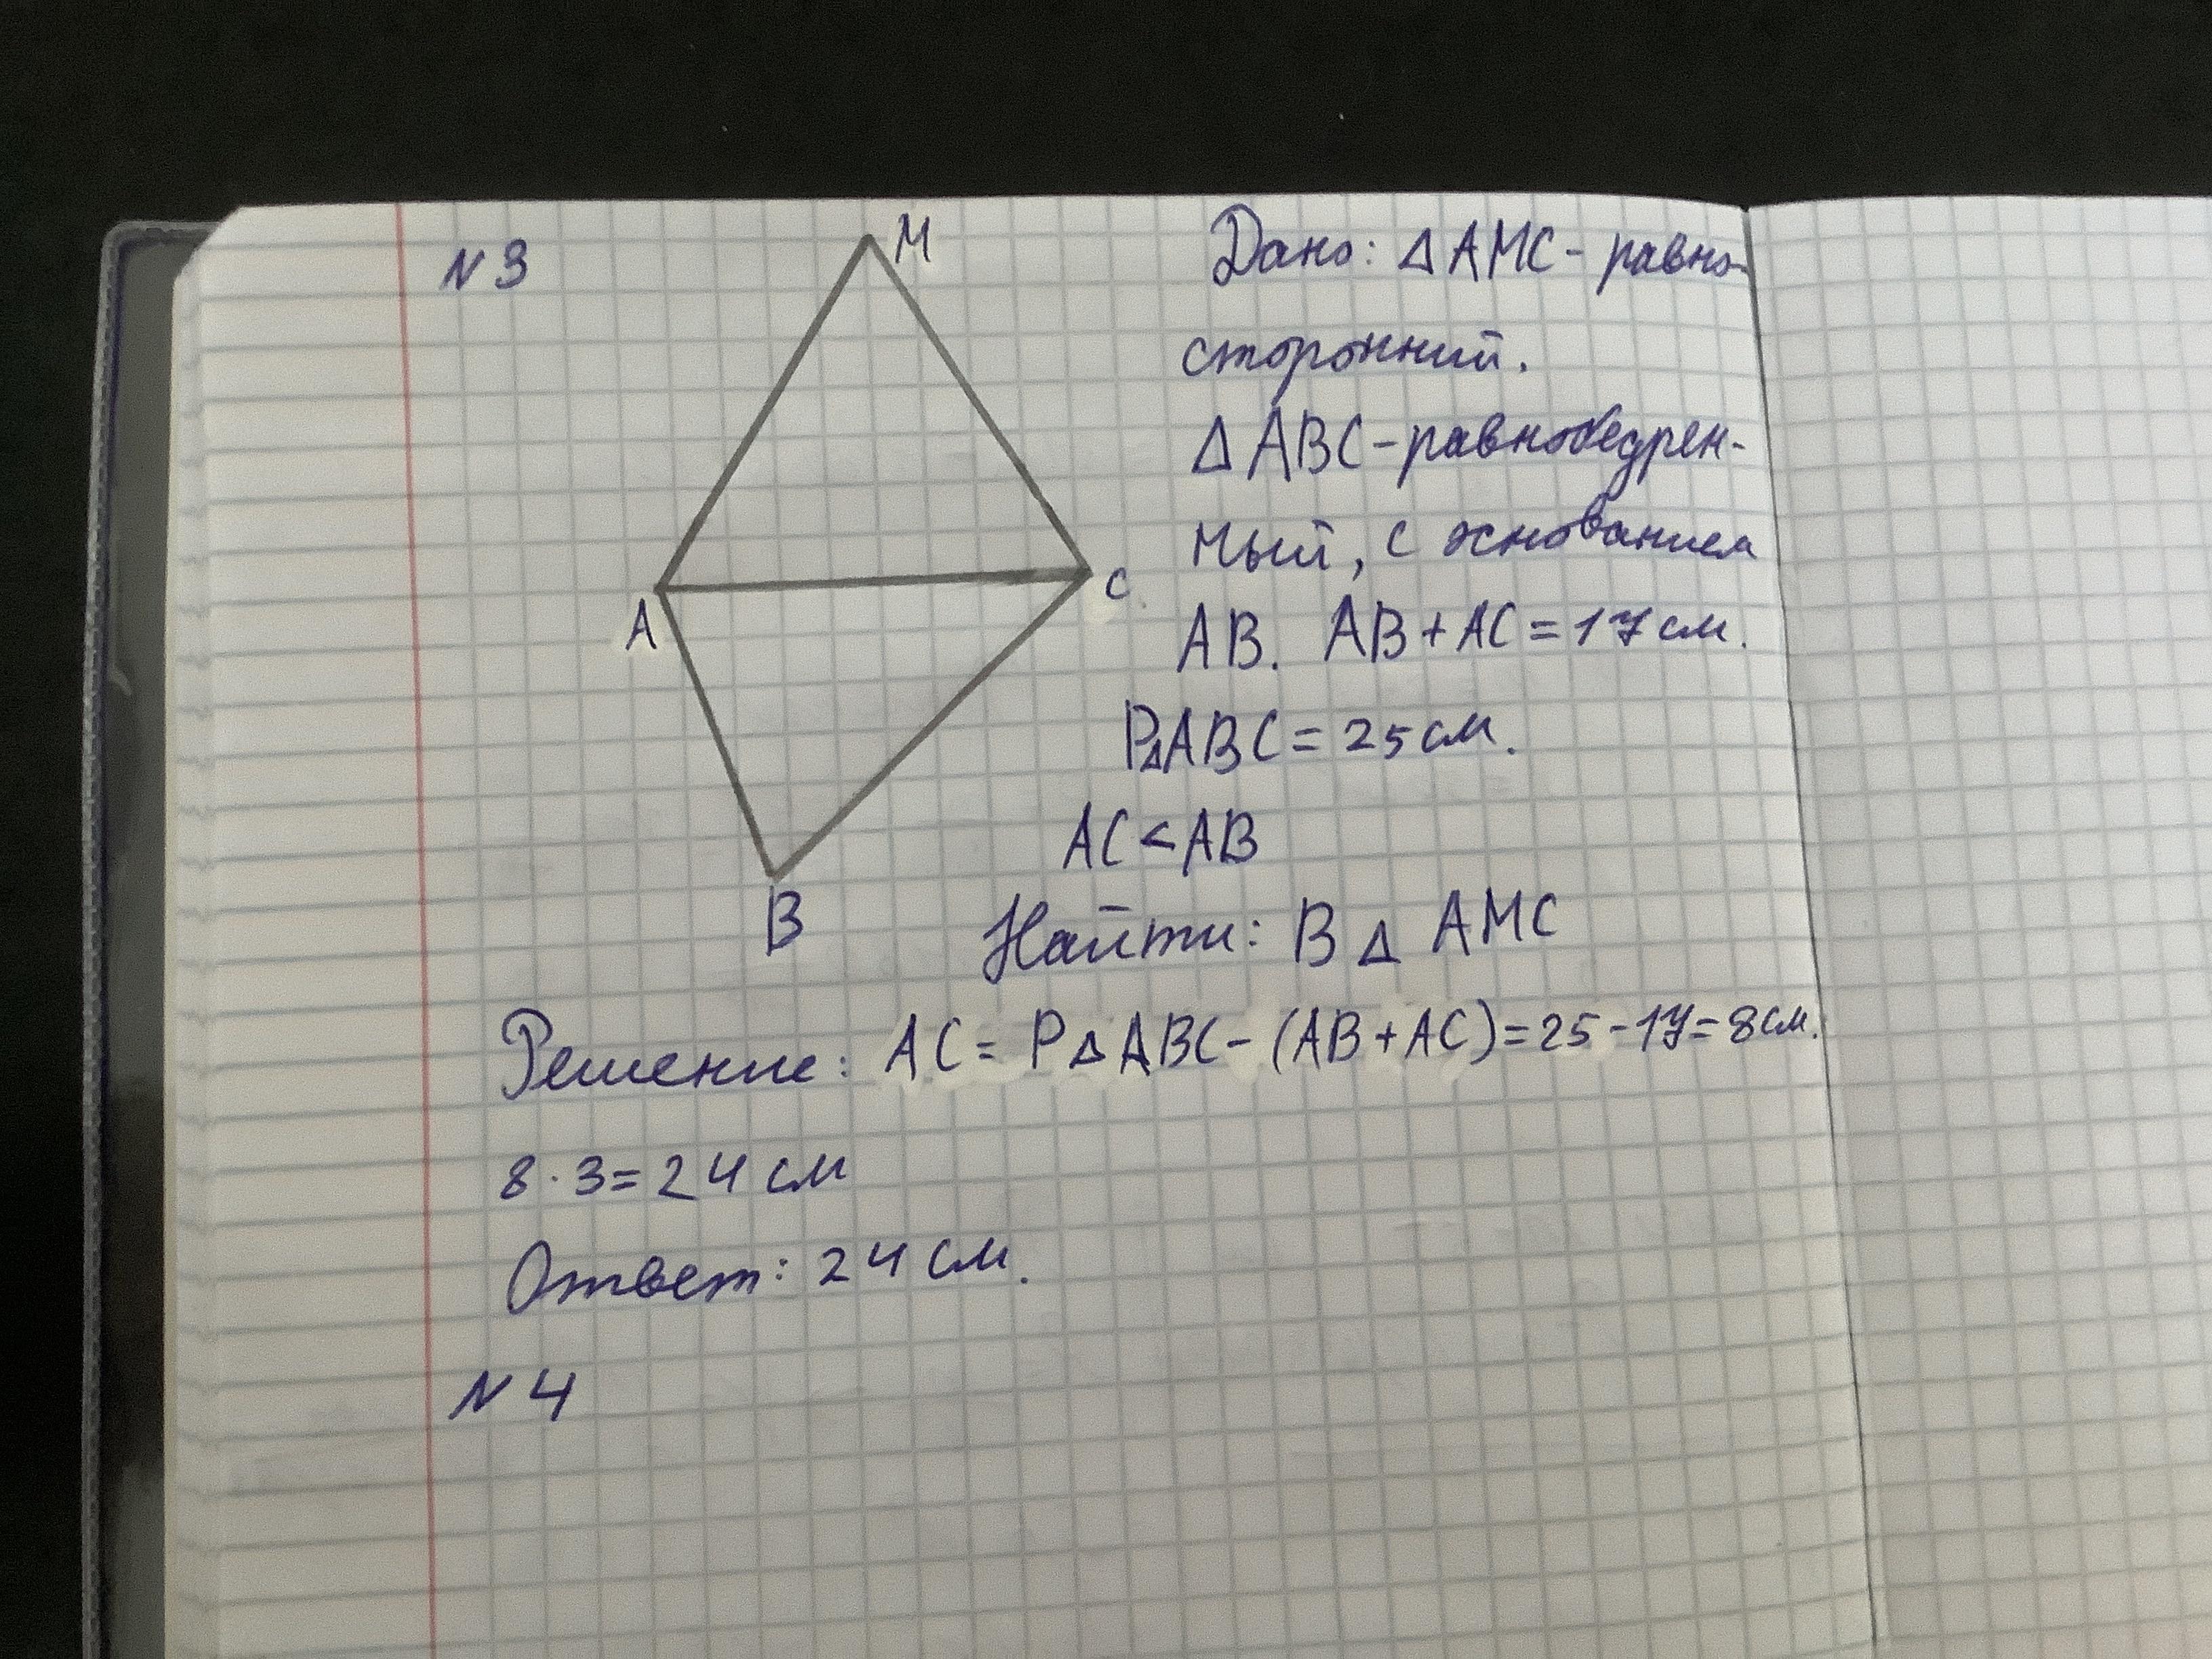 N 3
M
A
C
B
Дано: Δ AMC - равно-
сторонний.
Δ ABC - равнобедрен-
ный, с основанием
AB. AB + AC = 17 см.
PΔABC = 25 см.
AC < AB
Найти: B Δ AMC
Решение: AC = P Δ ABC - (AB + AC) = 25 - 17 = 8 см.
8 · 3 = 24 см
Ответ: 24 см.
N 4